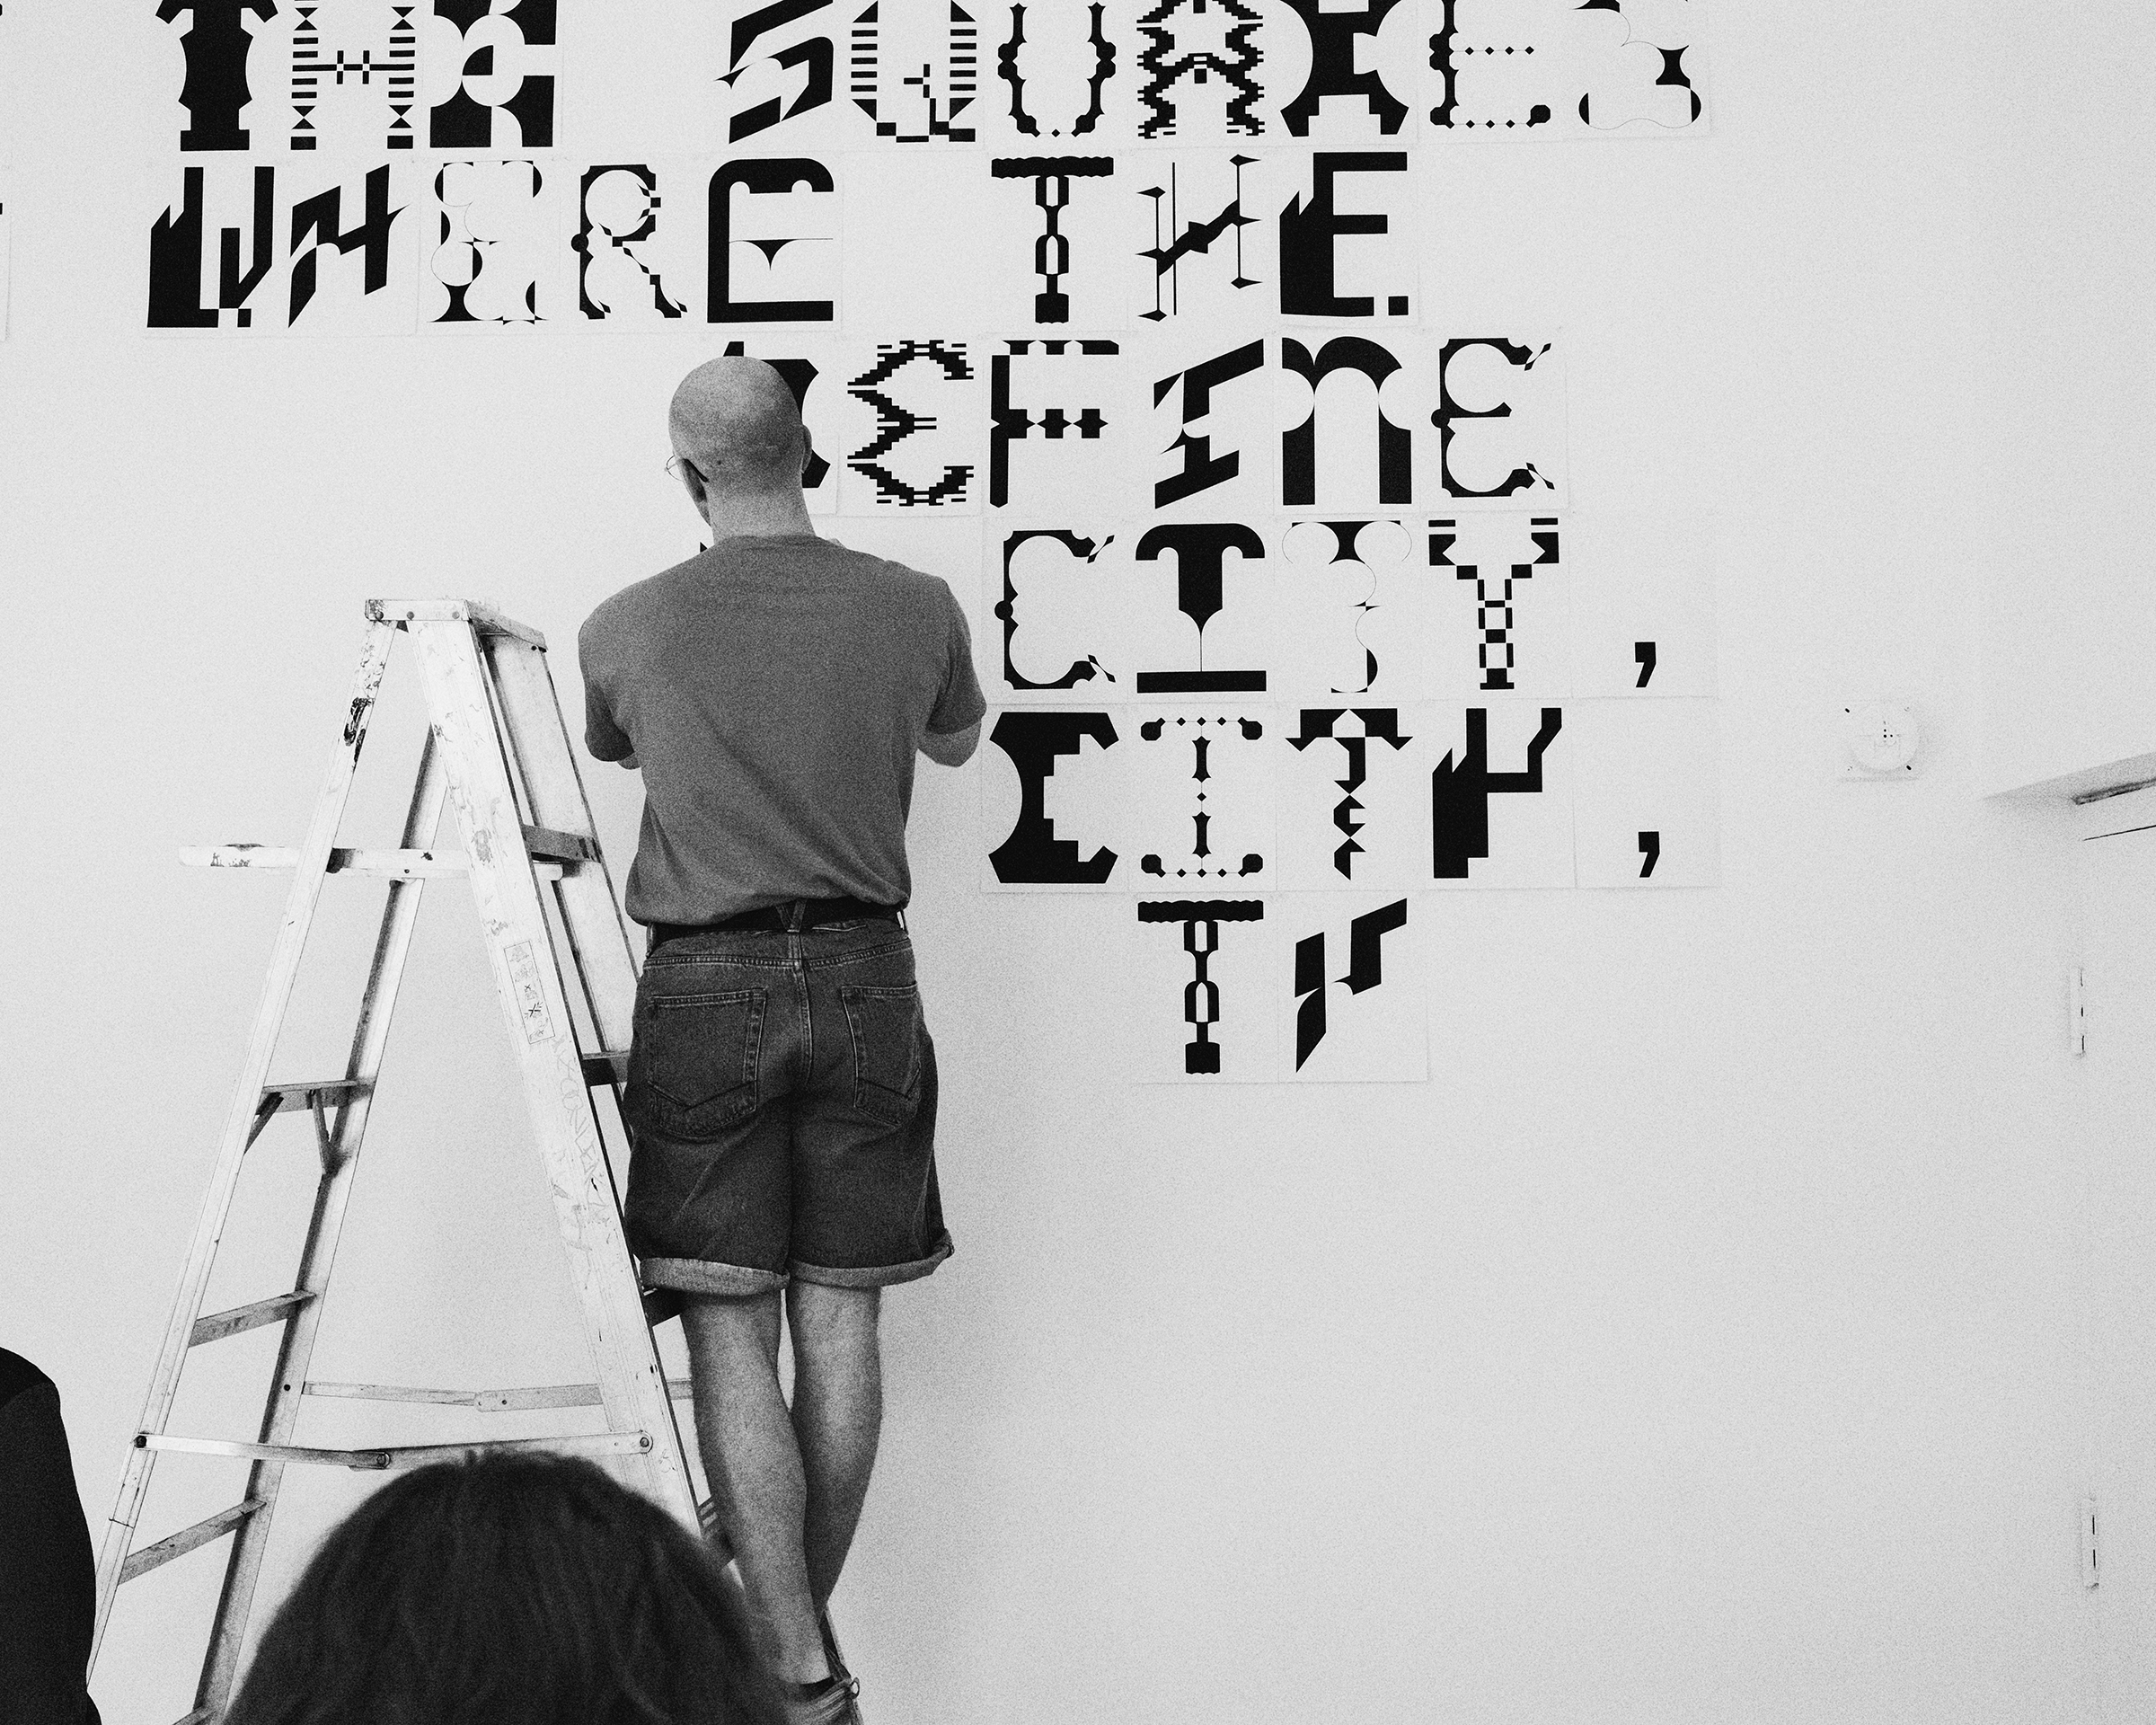 THE SQUARES
WHERE THE
EFINE
CITY,
CITY,
TY